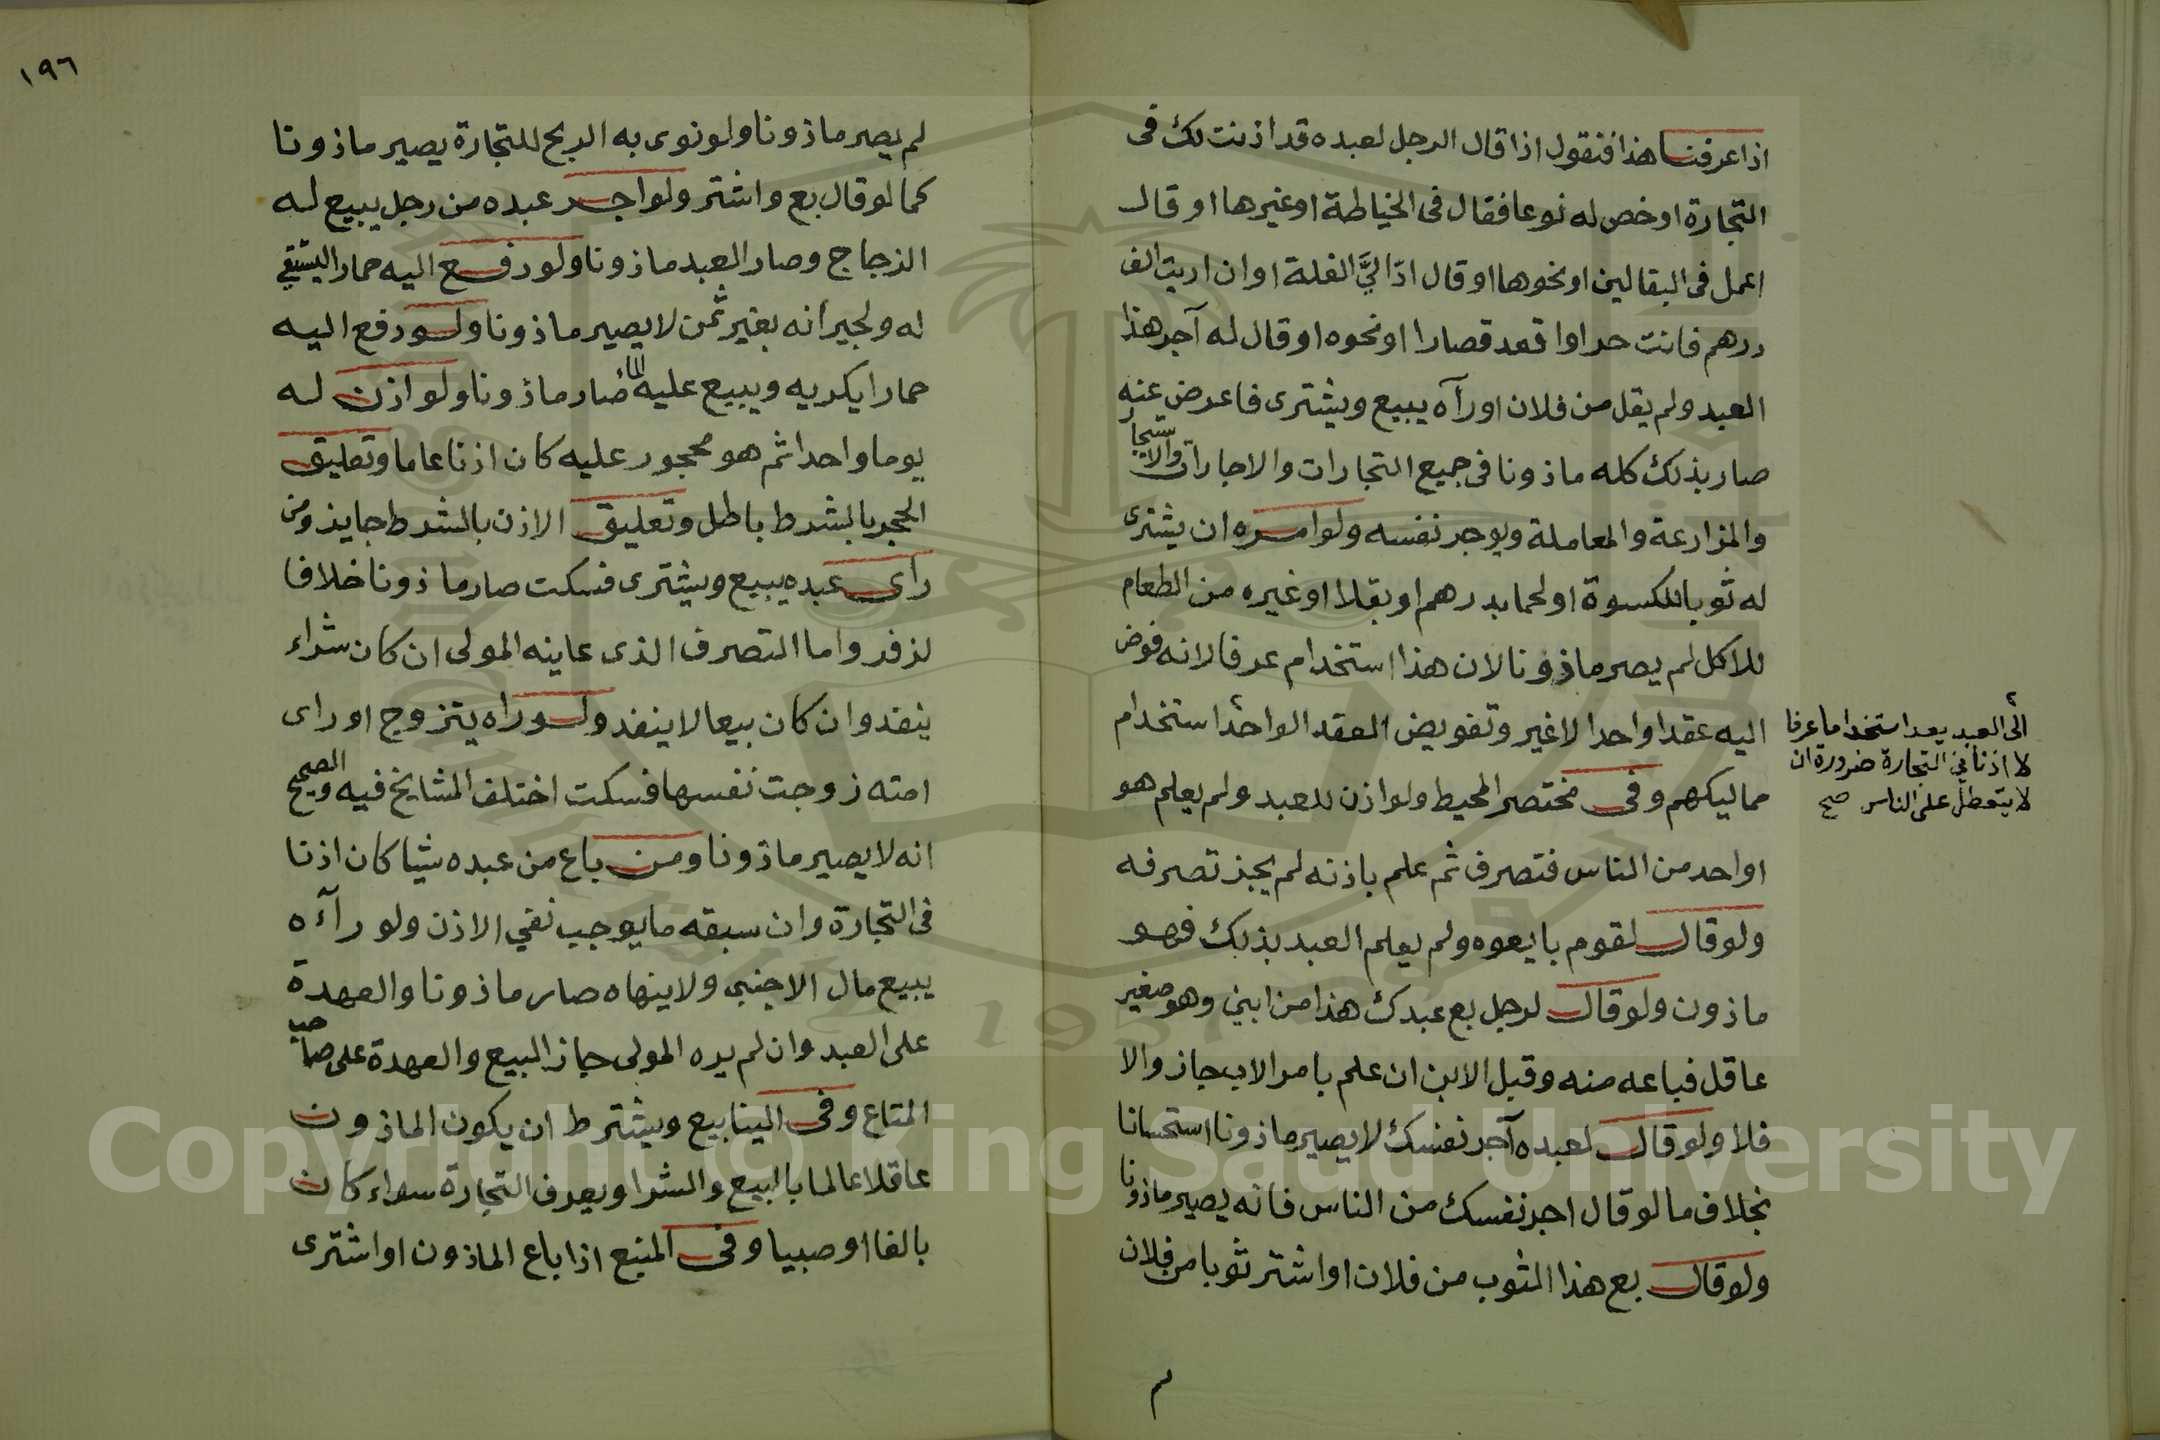 اذا عرفنا هذا فنقول اذا قال الرجل لعبده قد اذنت لك فى
التجارة او خص له نوعا فقال فى الخياطة او غيرها او قال
اعمل فى البقالين او نحوها او قال ادّ اليَّ الغلة او ان اديت الف
درهم فانت حر او اقعد قصارا او نحوه او قال له آجر هذا
العبد ولم يقل من فلان او رآه يبيع ويشترى فاعرض عنه
صار بذلك كله ماذونا فى جميع التجارات والاجارات والاستيجار
والمزارعة والمعاملة ويوجر نفسه ولو امره ان يشترى
له ثوبا للكسوة او لحما بدرهم او بقلا او غيره من الطعام
للاكل لم يصر ماذونا لان هذا استخدام عرفا لانه فوض
اليه عقدا واحدا لا غير وتفويض العقد الواحد استخدام
الى العبد يعد استخداما عرفا
لا اذنا فى التجارة ضرورة ان
لا يتعطل على الناس صح
مماليكهم وفى مختصر المحيط ولو اذن للعبد ولم يعلم هو
او احد من الناس فتصرف ثم علم باذنه لم يجز تصرفه
ولو قال لقوم بايعوه ولم يعلم العبد بذلك فهو
ماذون ولو قال لرجل بع عبدك هذا من ابني وهو صغير
عاقل فباعه منه وقبل الابن ان علم بامر الاب جاز والا
فلا ولو قال لعبده آجر نفسك لا يصير ماذونا استحسانا
بخلاف ما لو قال اجر نفسك من الناس فانه يصير ماذونا
ولو قال بع هذا الثوب من فلان او اشتر ثوبا من فلان
لم
١٩٦
لم يصر ماذونا ولو نوى به الربح للتجارة يصير ماذونا
كما لو قال بع واشتر ولو اجر عبده من رجل يبيع له
الزجاج وصار العبد ماذونا ولو دفع اليه حمارا ليستقي
له ولجيرانه بغير ثمن لا يصير ماذونا ولو دفع اليه
حمارا يكريه ويبيع عليه الماء صار ماذونا ولو اذن له
يوما واحدا ثم هو محجور عليه كان اذنا عاما وتعليق
الحجر بالشرط باطل وتعليق الاذن بالشرط جايز ومن
راى عبده يبيع ويشترى فسكت صار ماذونا خلافا
لزفر واما التصرف الذى عاينه المولى ان كان شراء
ينفد وان كان بيعا لا ينفد ولو راه يتزوج او راى
امته زوجت نفسها فسكت اختلف المشايخ فيه والصحيح
انه لا يصير ماذونا ومن باع من عبده شيا كان اذنا
فى التجارة وان سبقه ما يوجب نفي الاذن ولو رآءه
يبيع مال الاجنبى ولا ينهاه صار ماذونا والعهدة
على العبد وان لم يره المولى جاز البيع والعهدة على صاحب
المتاع وفى الينابيع ويشترط ان يكون الماذون
عاقلا عالما بالبيع والشرا ويعرف التجارة سواء كان
بالغا او صبيا وفى المنبع اذا باع الماذون او اشترى
1957
Copyright © King Saud University